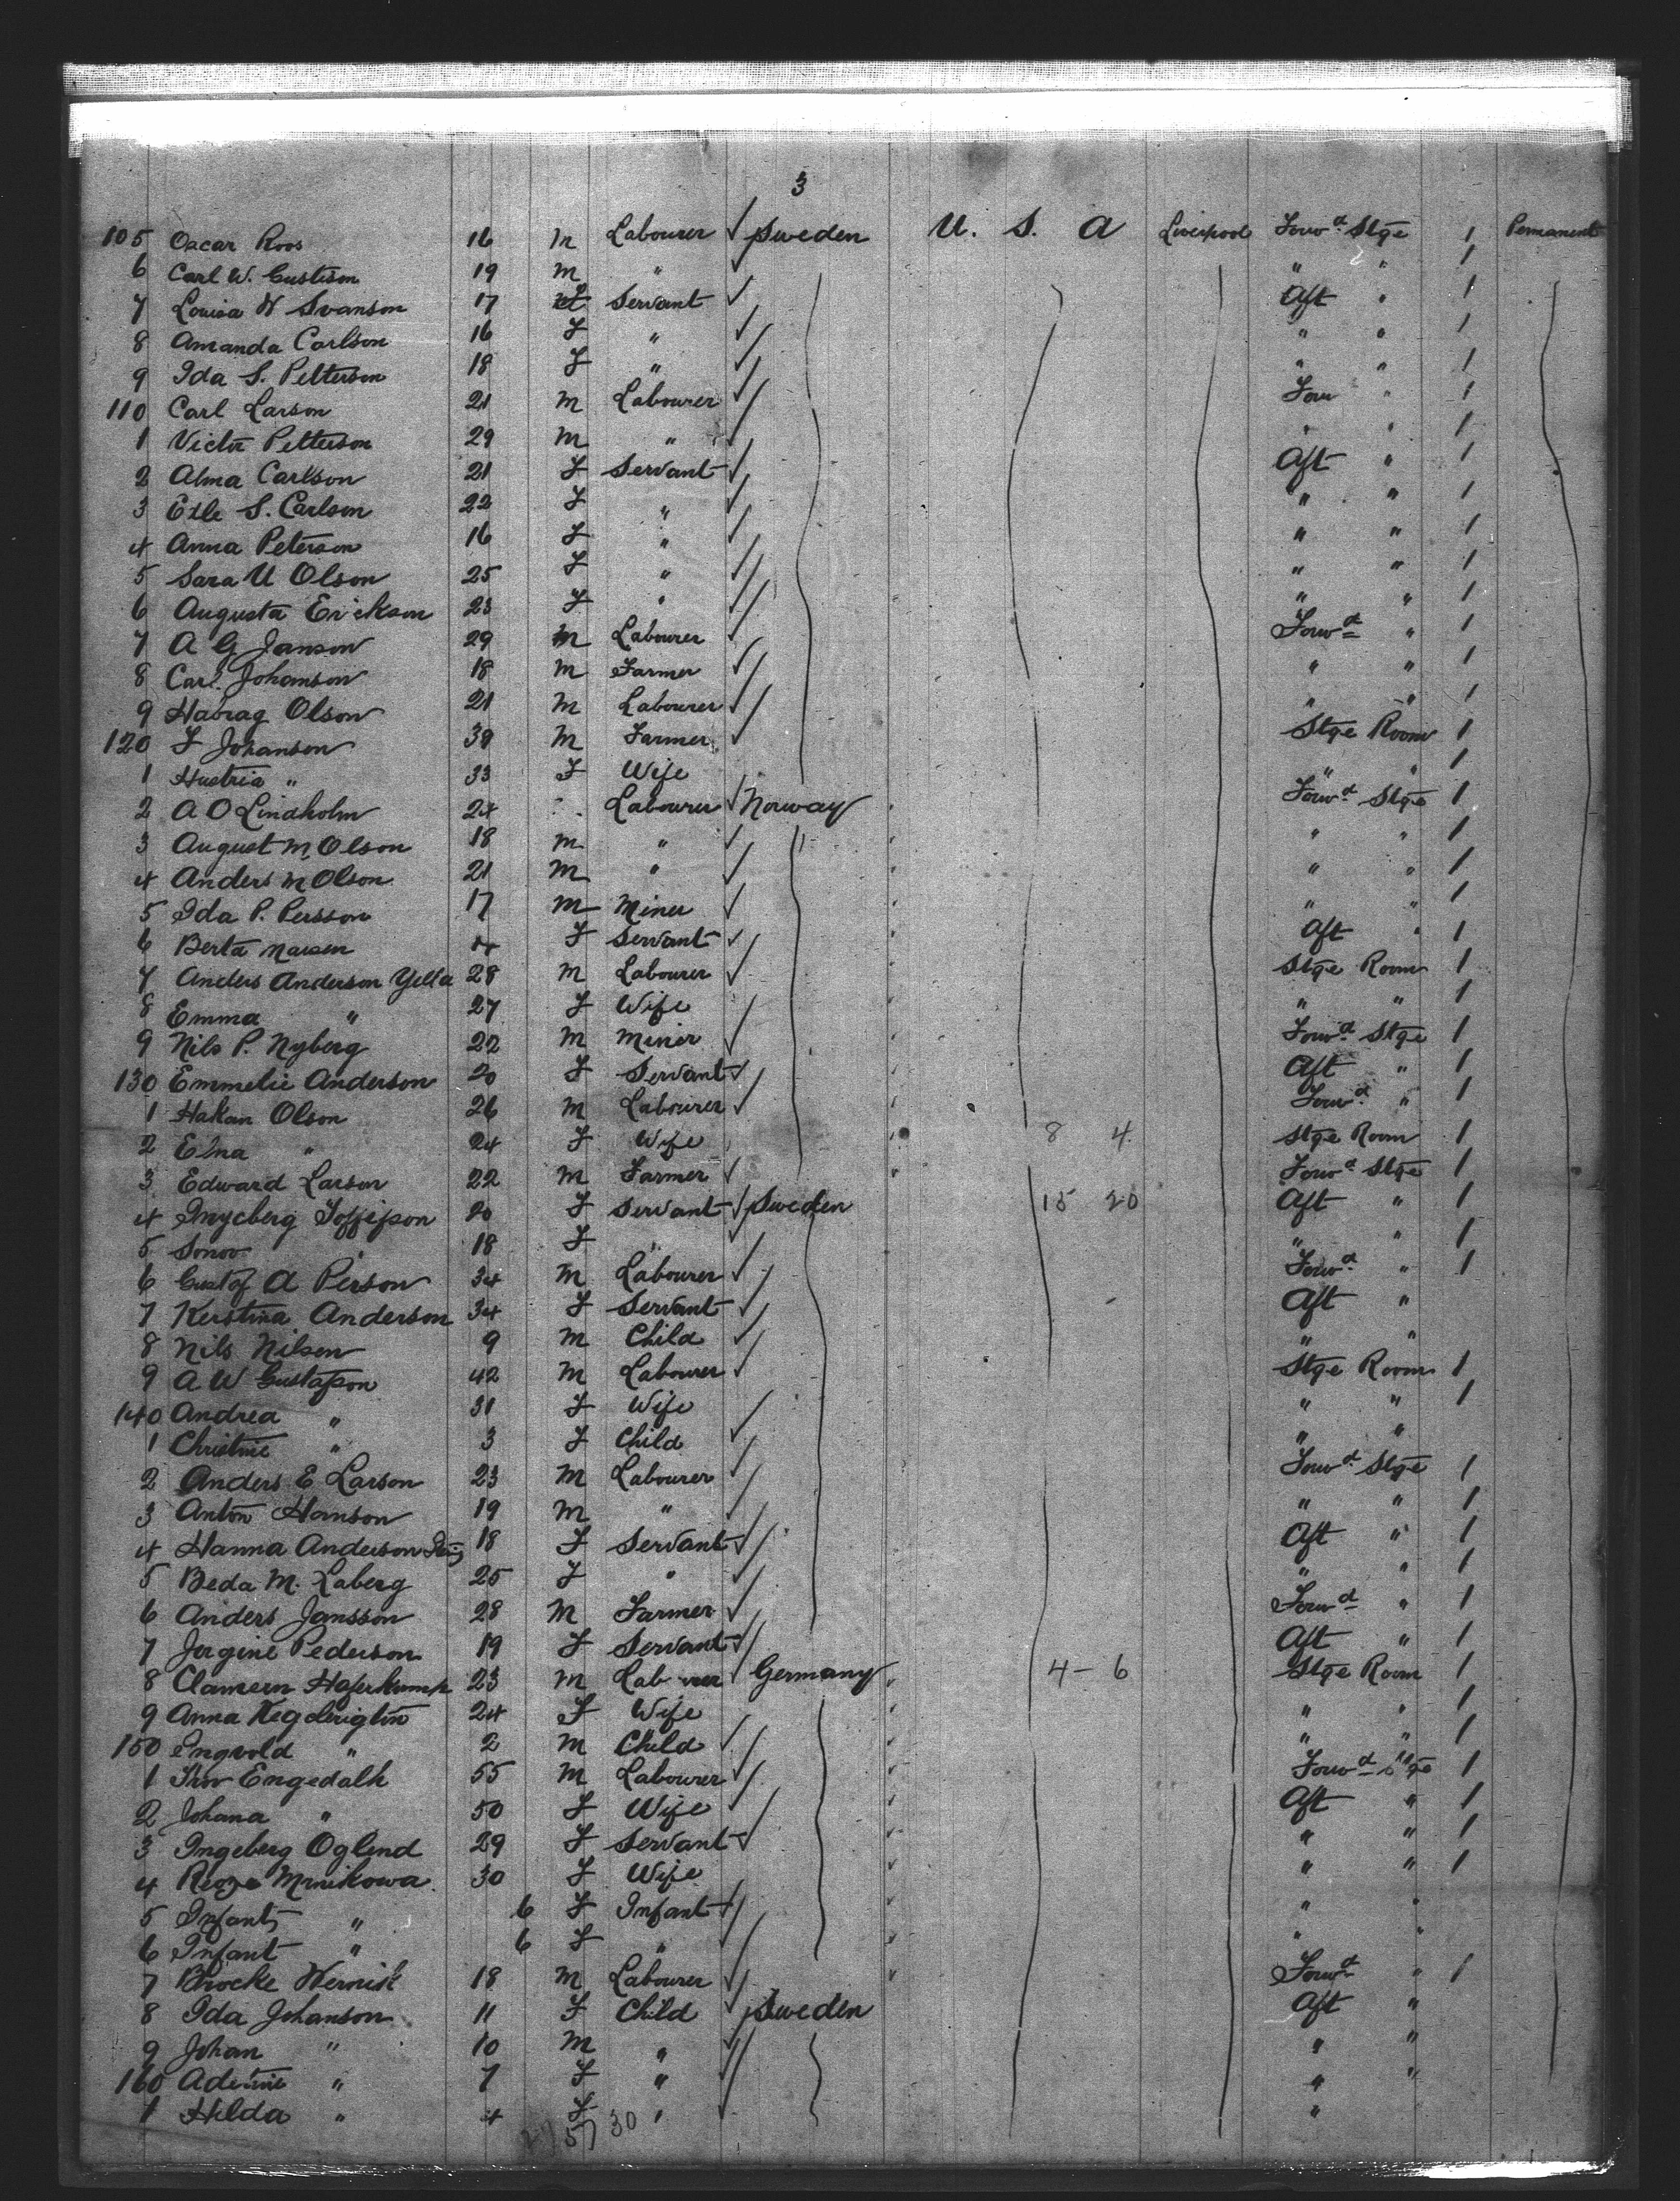 3
105 Oscar Roos 16 m Labourer Sweden U. S. A Liverpool Forwd Stge 1 Permanent
6 Carl W. Gustison 19 m " " " 1
7 Louisa N Svanson 17 f Servant Aft " 1
8 Amanda Carlson 16 F " " " 1
9 Ida S. Petterson 18 F " " " 1
110 Carl Larson 21 m Labourer Forw " 1
1 Victor Petterson 29 m " " " 1
2 Alma Carlson 21 F Servant Aft " 1
3 S. Carlson 22 F " " " 1
4 Anna Peterson 16 F " " " 1
5 Sara U Olson 25 F " " " 1
6 Augusta Erickson 23 F " " " 1
7 A G Janson 29 m Labourer Forwd " 1
8 Carl Johanson 18 m Farmer " " 1
9 Olson 21 m Labourer " " 1
120 F Johanson 39 m Farmer Stge Room 1
1 " 33 F Wife " " 1
2 A O Lindholm 24 Labourer Norway Forwd Stge 1
3 August M Olson 18 m " " " 1
4 Anders M Olson 21 m " " " 1
5 Ida P. Persson 17 m Miner " " 1
6 Berta F Servant Aft " 1
7 Anders Anderson 28 m Labourer Stge Room 1
8 Emma " 27 F Wife " " 1
9 Nils P. Nyberg 22 m Miner Forwd Stge 1
130 Emmelie Anderson 20 F Servant Aft " 1
1 Hakan Olson 26 m Labourer Forwd " 1
2 Elna " 24 F Wife 8 4 Stge Room 1
3 Edward Larson 22 m Farmer Forwd Stge 1
4 20 F Servant Sweden 15 20 Aft " 1
5 18 F " " " 1
6 Gustof A Person 34 m Labourer Forwd " 1
7 Kerstina Anderson 34 F Servant Aft "
8 Nils Nilsen 9 m Child " "
9 A W Gustafson 42 m Labourer Stge Room 1
140 Andrea " 31 F Wife " " 1
1 Christine " 3 F Child " "
2 Anders E Larson 23 m Labourer Forwd Stge 1
3 Anton Hanson 19 m " " " 1
4 Hanna Anderson 18 F Servant Aft " 1
5 Beda M. Laberg 25 F " " " 1
6 Anders Jansson 28 m Farmer Forwd " 1
7 Jergine Pederson 19 F Servant Aft " 1
8 23 m Labourer Germany 4 - 6 Stge Room 1
9 Anna 24 F Wife " " 1
150 Engvold " 2 m Child " " 1
1 Engedalh 55 m Labourer Forwd Stge 1
2 Johana " 50 F Wife Aft " 1
3 Ingeberg Oglend 29 F Servant " " 1
4 30 F Wife " " 1
5 Infant " 6 F Infant " "
6 Infant " 6 F " " "
7 Brocke 18 m Labourer Forwd " 1
8 Ida Johanson 11 F Child Sweden Aft "
9 Johan " 10 m " " "
160 " 7 F " " "
1 Hilda " 4 F " "
57 30